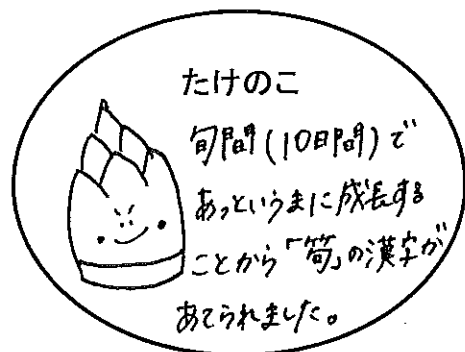 たけのこ
旬間(10日間)で
あっというまに成長する
ことから「筍」の漢字が
あてられました。